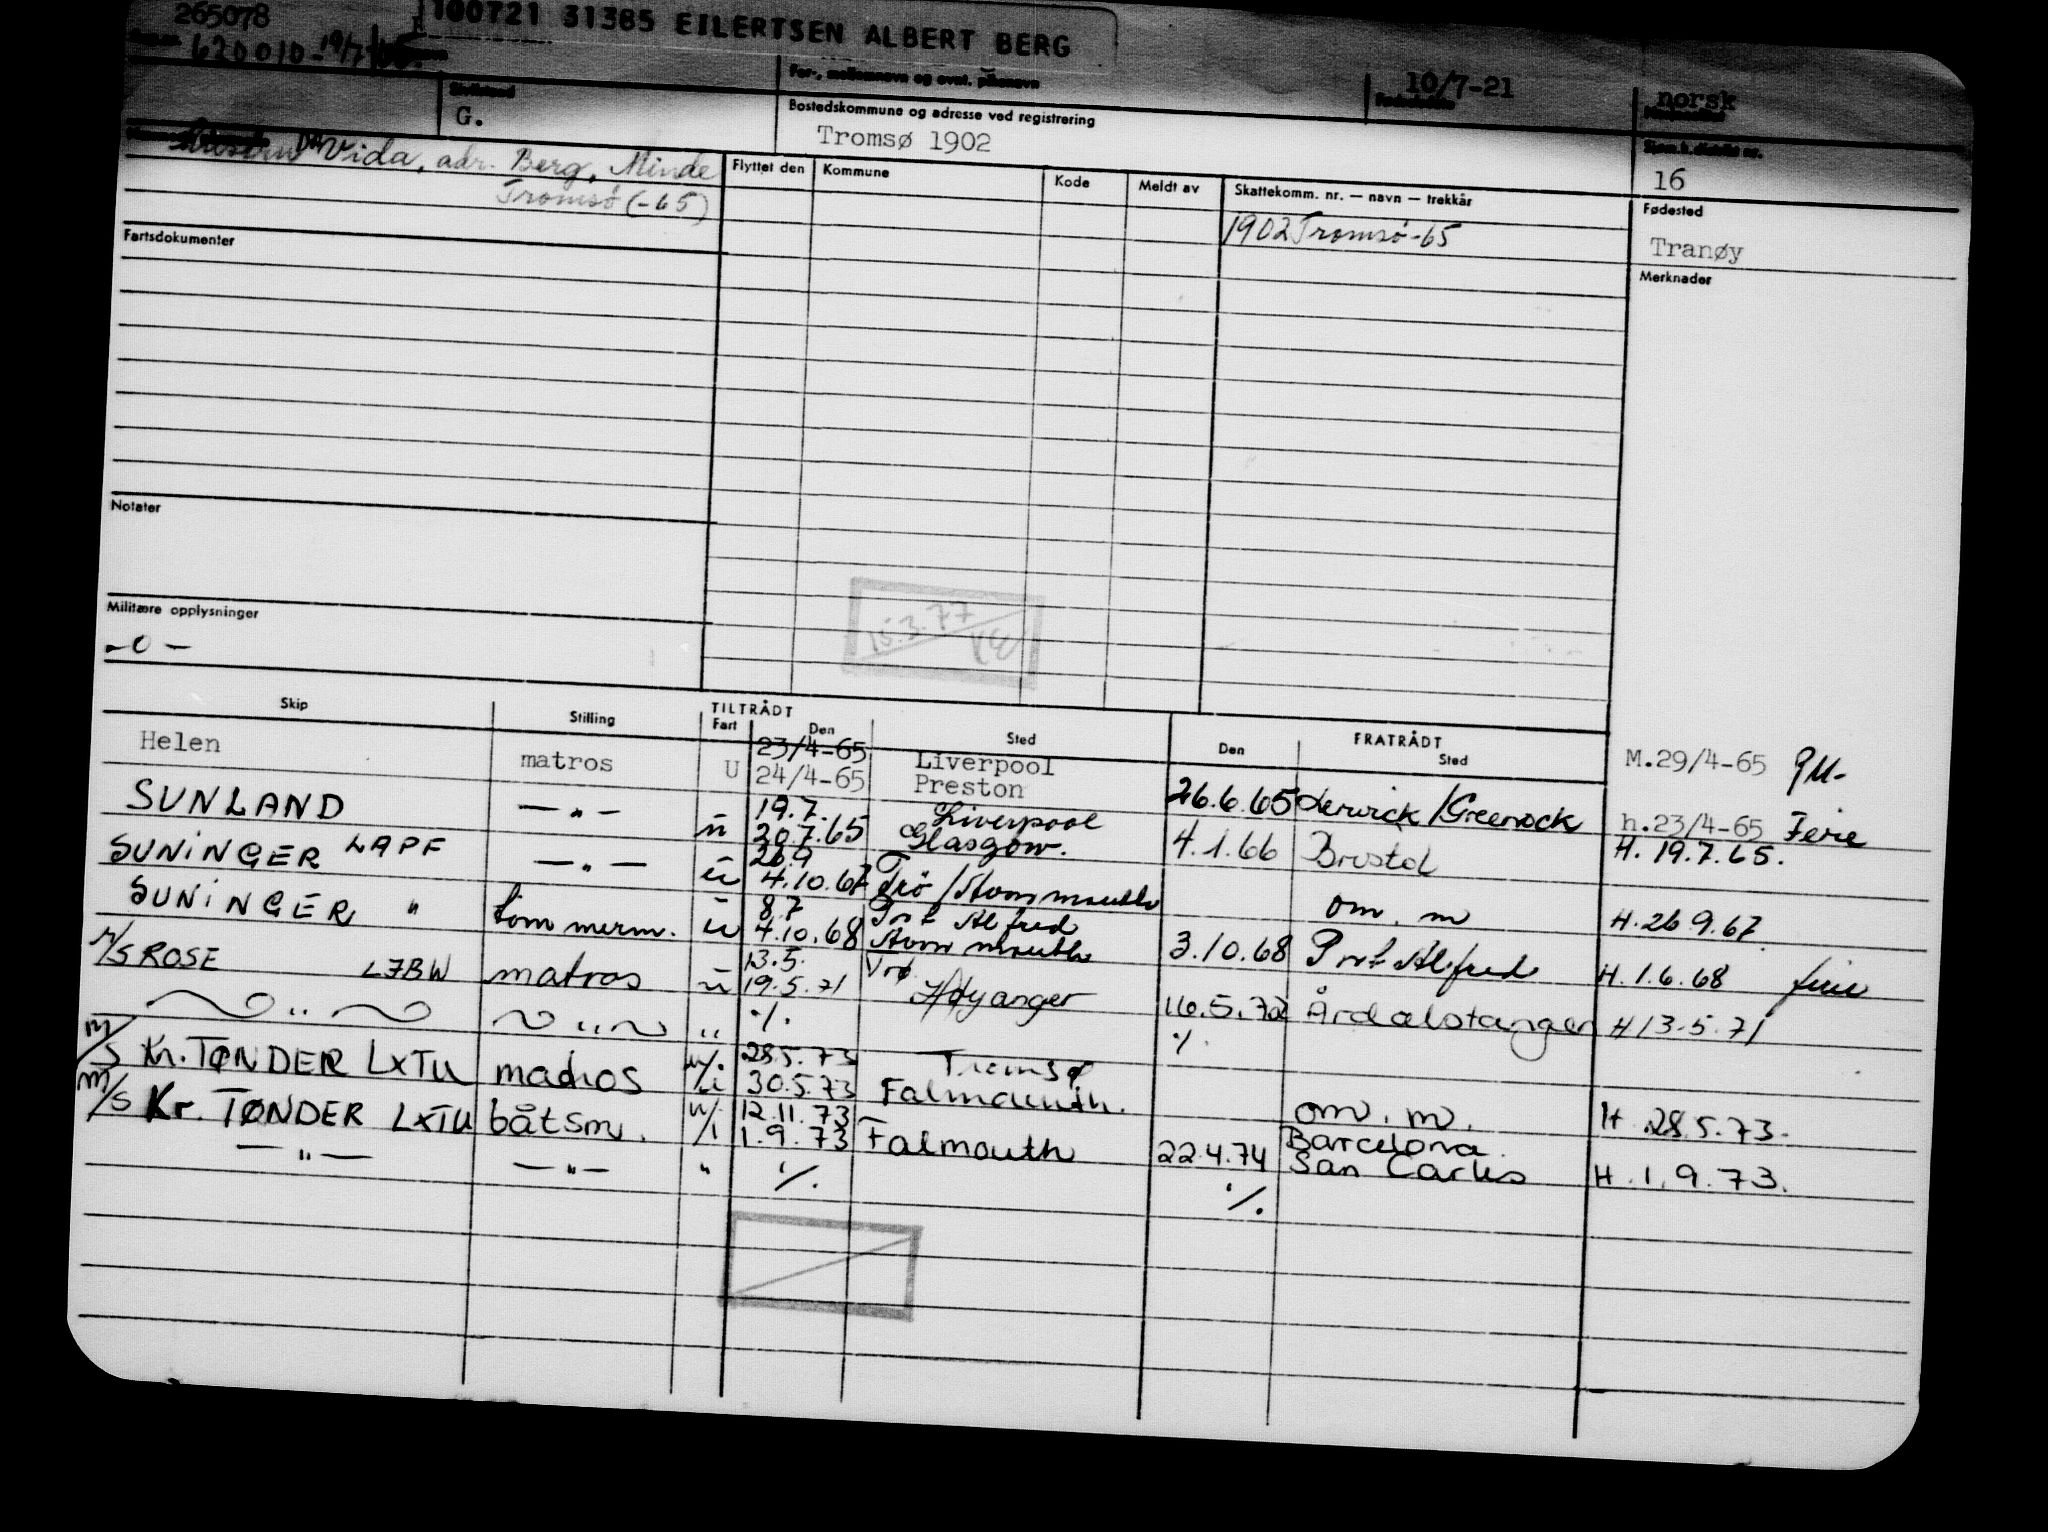 265078
100721 31385 EILERTSEN ALBERT BERG
620010-19/7
For-, mellomnavn og evnt. pikenavn
10/7-21
norsk
G.
Bostedskommune og adresse ved registrering
Tromsø 1902
Sjøm.k.distrikt nr.
16
Vida, adr. Berg, Minde
Tromsø (-65)
Flyttet den Kommune Kode Meldt av Skattekomm. nr. — navn — trekkår
1902 Tromsø-65
Fødested
Tranøy
Fartsdokumenter
Merknader
Notater
15.3.77
Militære opplysninger
-0-
Skip Stilling TILTRÅDT Fart Den Sted Den FRATRÅDT Sted
Helen matros U 23/4-65 Liverpool M.29/4-65
24/4-65 Preston 26.6.65 Lerwick/Greenock h.23/4-65 Ferie
SUNLAND —"— u 19.7. Liverpool H. 19.7.65.
20.7.65 Glasgow. 4.1.66 Bristol
SUNINGER LAPF —"— u 26.9
4.10.67 Trø/Avonmouth om. m H.26.9.67.
SUNINGER " tømmerm. u 8.7 Port Alfred
4.10.68 Avonmouth 3.10.68 Port Alfred H.1.6.68 ferie
M/S ROSE LJBW matros u 13.5.
19.5.71 Høyanger 16.5.72 Årdalstangen H 13.5.71
" " " ./. ./.
M/S Kr. TØNDER LXTU matros u/i 28.5.73 Tromsø
30.5.73 Falmouth. om. m. H.28.5.73.
M/S Kr. TØNDER LXTU båtsm. u/i 12.11.73 Barcelona
1.9.73 Falmouth 22.4.74 San Carlos H.1.9.73.
—"— —"— " ./. ./.